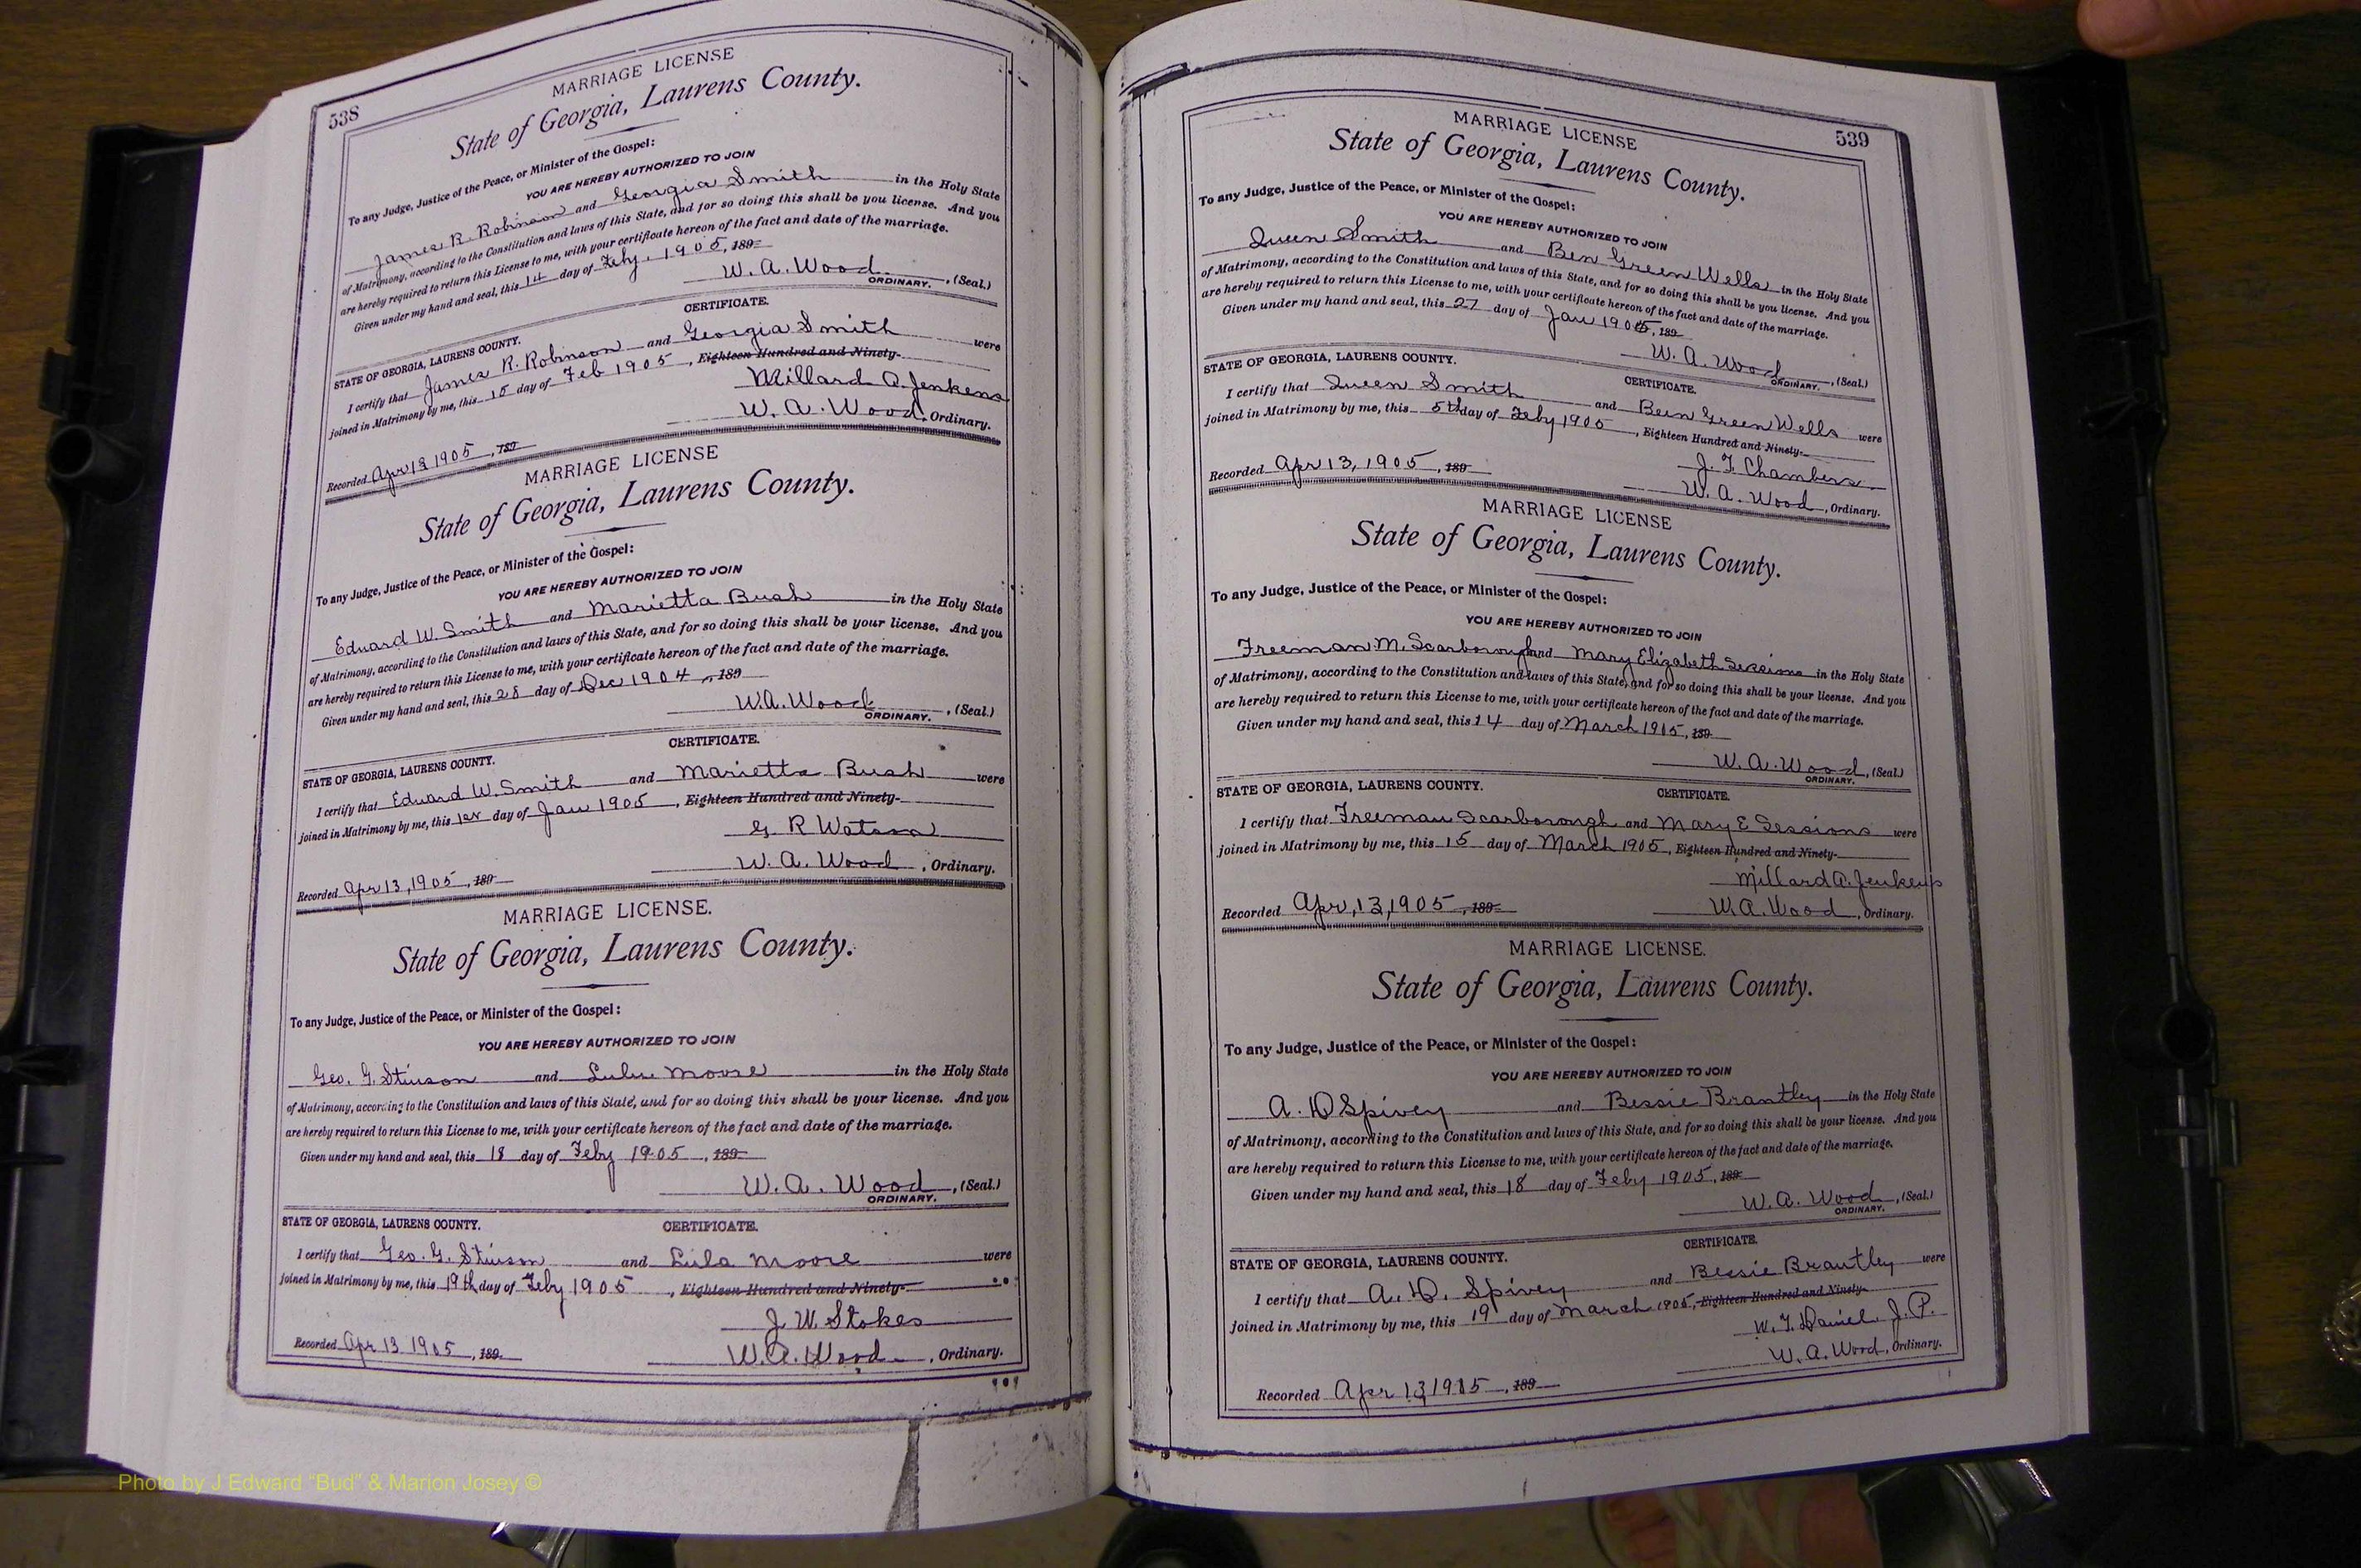 538
MARRIAGE LICENSE
State of Georgia, Laurens County.
To any Judge, Justice of the Peace, or Minister of the Gospel:
YOU ARE HEREBY AUTHORIZED TO JOIN
James R. Robinson and Georgia Smith in the Holy State
of Matrimony, according to the Constitution and laws of this State, and for so doing this shall be you license. And you
are hereby required to return this License to me, with your certificate hereon of the fact and date of the marriage.
Given under my hand and seal, this 14 day of Feby. 1905, 189
W. A. Wood, (Seal.)
ORDINARY.
CERTIFICATE.
STATE OF GEORGIA, LAURENS COUNTY.
I certify that James R. Robinson and Georgia Smith were
joined in Matrimony by me, this 15 day of Feb 1905, Eighteen Hundred and Ninety-
Millard A. Jenkens
W. A. Wood, Ordinary.
Recorded Apr 13 1905, 189
MARRIAGE LICENSE
State of Georgia, Laurens County.
To any Judge, Justice of the Peace, or Minister of the Gospel:
YOU ARE HEREBY AUTHORIZED TO JOIN
Edward W. Smith and Marietta Bush in the Holy State
of Matrimony, according to the Constitution and laws of this State, and for so doing this shall be your license. And you
are hereby required to return this License to me, with your certificate hereon of the fact and date of the marriage.
Given under my hand and seal, this 28 day of Dec 1904, 189
W. A. Wood, (Seal.)
ORDINARY.
CERTIFICATE.
STATE OF GEORGIA, LAURENS COUNTY.
I certify that Edward W. Smith and Marietta Bush were
joined in Matrimony by me, this 1st day of Jan 1905, Eighteen Hundred and Ninety-
G. R Watson
W. A. Wood, Ordinary.
Recorded Apr 13, 1905, 189
MARRIAGE LICENSE.
State of Georgia, Laurens County.
To any Judge, Justice of the Peace, or Minister of the Gospel:
YOU ARE HEREBY AUTHORIZED TO JOIN
Geo. G. Stinson and Lula Moore in the Holy State
of Matrimony, according to the Constitution and laws of this State, and for so doing this shall be your license. And you
are hereby required to return this License to me, with your certificate hereon of the fact and date of the marriage.
Given under my hand and seal, this 18 day of Feby 1905, 189
W. A. Wood, (Seal.)
ORDINARY.
STATE OF GEORGIA, LAURENS COUNTY. CERTIFICATE.
I certify that Geo. G. Stinson and Lula Moore were
joined in Matrimony by me, this 19th day of Feby 1905, Eighteen Hundred and Ninety-
J. W. Stokes
W. A. Wood, Ordinary.
Recorded Apr 13 1905, 189
539
MARRIAGE LICENSE
State of Georgia, Laurens County.
To any Judge, Justice of the Peace, or Minister of the Gospel:
YOU ARE HEREBY AUTHORIZED TO JOIN
Queen Smith and Ben Green Wells in the Holy State
of Matrimony, according to the Constitution and laws of this State, and for so doing this shall be you license. And you
are hereby required to return this License to me, with your certificate hereon of the fact and date of the marriage.
Given under my hand and seal, this 27 day of Jan 1905, 189
W. A. Wood, (Seal.)
ORDINARY.
STATE OF GEORGIA, LAURENS COUNTY. CERTIFICATE.
I certify that Queen Smith and Ben Green Wells were
joined in Matrimony by me, this 5th day of Feby 1905, Eighteen Hundred and Ninety-
J. T. Chambers
W. A. Wood, Ordinary.
Recorded Apr 13, 1905, 189
MARRIAGE LICENSE
State of Georgia, Laurens County.
To any Judge, Justice of the Peace, or Minister of the Gospel:
YOU ARE HEREBY AUTHORIZED TO JOIN
Freeman M. Scarborough and Mary Elizabeth Sessions in the Holy State
of Matrimony, according to the Constitution and laws of this State, and for so doing this shall be your license. And you
are hereby required to return this License to me, with your certificate hereon of the fact and date of the marriage.
Given under my hand and seal, this 14 day of March 1905, 189
W. A. Wood, (Seal.)
ORDINARY.
STATE OF GEORGIA, LAURENS COUNTY. CERTIFICATE.
I certify that Freeman Scarborough and Mary E Sessions were
joined in Matrimony by me, this 15 day of March 1905, Eighteen Hundred and Ninety-
Millard A. Jenkens
W. A. Wood, Ordinary.
Recorded Apr, 13, 1905, 189
MARRIAGE LICENSE.
State of Georgia, Laurens County.
To any Judge, Justice of the Peace, or Minister of the Gospel:
YOU ARE HEREBY AUTHORIZED TO JOIN
A. D Spivey and Bessie Brantley in the Holy State
of Matrimony, according to the Constitution and laws of this State, and for so doing this shall be your license. And you
are hereby required to return this License to me, with your certificate hereon of the fact and date of the marriage.
Given under my hand and seal, this 18 day of Feby 1905, 189
W. A. Wood, (Seal.)
ORDINARY.
CERTIFICATE.
STATE OF GEORGIA, LAURENS COUNTY.
I certify that A. D. Spivey and Bessie Brantley were
joined in Matrimony by me, this 19 day of March 1905, Eighteen Hundred and Ninety-
W. T. Daniel J. P.
W. A. Wood, Ordinary.
Recorded Apr 13 1905, 189
Photo by J Edward "Bud" & Marion Josey ©